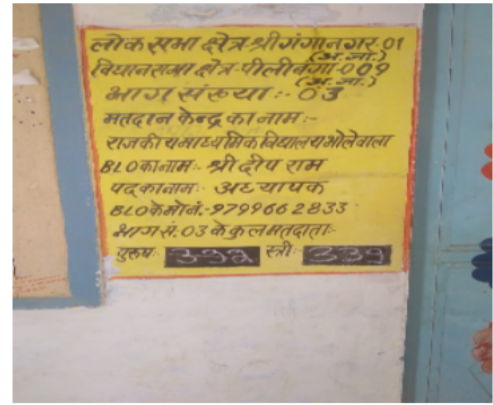 लोक सभा क्षेत्र-श्रीगंगानगर-01
(अ.जा.)
विधानसभा क्षेत्र-पीलीबंगा-009
(अ.जा.)
भाग संख्या :- 03
मतदान केन्द्र का नाम :-
राजकीय माध्यमिक विद्यालय भोलेवाला
BLO का नाम:- श्री दीप राम
पद का नाम:- अध्यापक
BLO के मो.नं.-9799662833
भाग सं. 03 के कुल मतदाता:-
पुरुष:- स्त्री:- 339